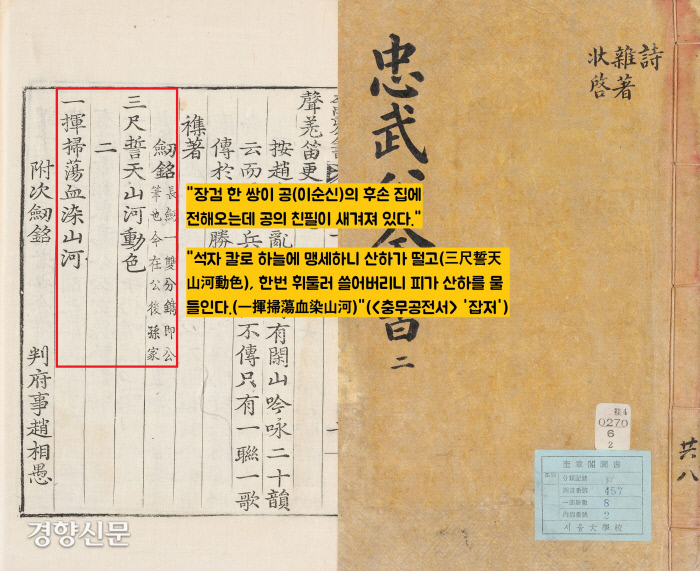 詩
雜著
狀啓
忠武公全書 二
共八
聲羌笛更
按趙
亂
有閑山吟咏二十韻
云而
兵
不傳只有一聯一歌
傳於
勝
襍著
劒銘
長劒一雙分鐫即公
筆也今在公後孫家
三尺誓天山河動色
二
一揮掃蕩血染山河
附次劒銘 判府事趙相愚
"장검 한 쌍이 공(이순신)의 후손 집에
전해오는데 공의 친필이 새겨져 있다."
"석자 칼로 하늘에 맹세하니 산하가 떨고(三尺誓天
山河動色), 한번 휘둘러 쓸어버리니 피가 산하를 물
들인다.(一揮掃蕩血染山河)"(<충무공전서> '잡저')
0270
6
2
奎章閣圖書
分類記號
圖書番號 457
一部冊數 8
2
서울大學校
경향신문